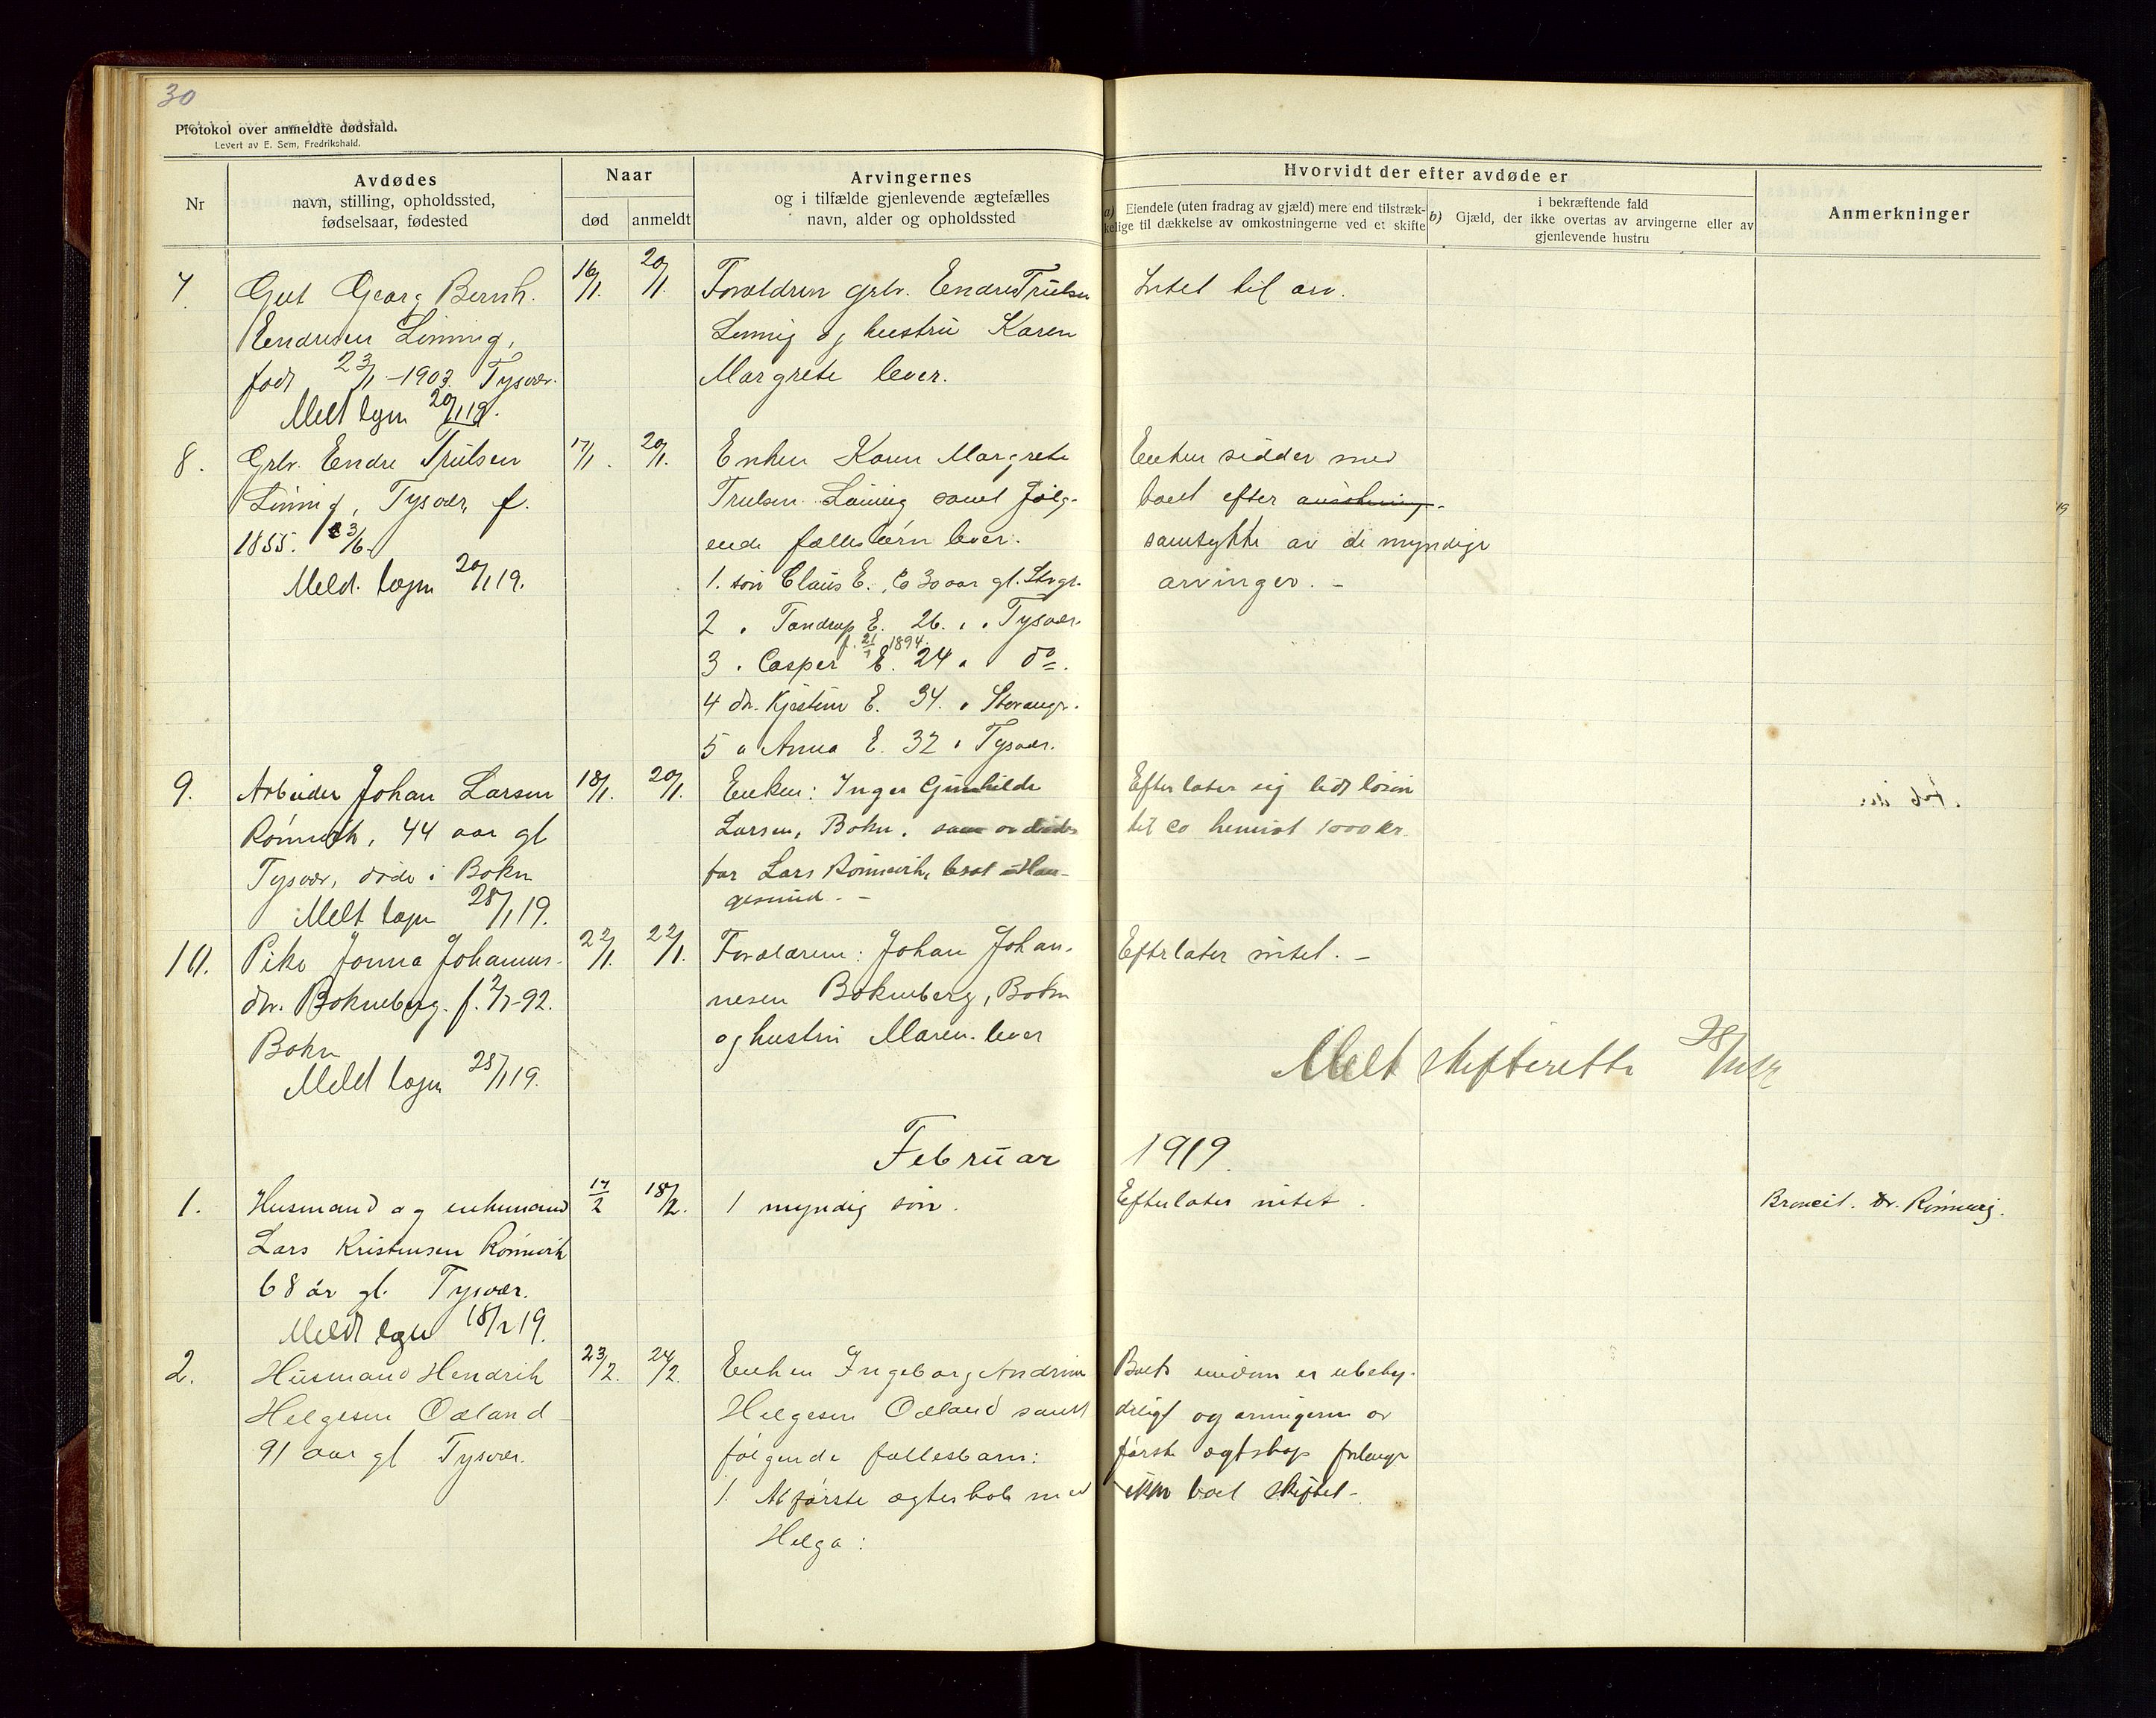 30
Protokol over anmeldte dødsfald.
Levert av E. Sem, Fredrikshald.
Nr
Avdødes
navn, stilling, opholdssted,
fødselsaar, fødested
Naar
død
anmeldt
Arvingernes
og i tilfælde gjenlevende ægtefælles
navn, alder og opholdssted
Hvorvidt der efter avdøde er
a) Eiendele (uten fradrag av gjæld) mere end tilstræk-
kelige til dækkelse av omkostningerne ved et skifte
i bekræftende fald
b) Gjæld, der ikke overtas av arvingerne eller av
gjenlevende hustru
Anmerkninger
7
Gut Georg Bernh.
Endresen
født 23/1-1903. Tysvær.
Melt logn 20/1 19.
16/1.
20/1.
Forældren grbr. Endre Trulsen
og hustru Karen
Margrete lever.
Intet til arv.
8.
Grbr. Endre Trulsen
Tysvær, f.
1855. 3/6.
Meld. logn 20/1 19.
17/1.
20/1.
Enken Karen Margrete
Trulsen samt følg-
ende fællesbørn lever.
1. søn Claus E. Co 30 aar gl. Stvgr.
2 " Tandrup E. 26. " " Tysvær.
f. 21/1 1894.
3 " Casper E. 24 " " do.
4 dtr. Kjestine E. 34. " Stavanger.
5 " Anna E. 32 " Tysvær.
Enken sidder med
boet efter
samtykke av de myndige
arvinger. -
9.
Arbeider Johan Larsen
Rønnevik, 44 aar gl
Tysvær, døde i Bokn
Melt logn 28/1 19.
18/1.
20/1.
Enken: Inger Gunhilde
Larsen, Bokn.
far Lars Rønnevik, Hau-
gesund. -
Efterlater sig lidt løsøre
til co henimot 1000 kr.
10.
Pike Jonna Johannes-
dtr. Bokneberg. f. 2/7-92.
Bokn
Meldt logn 28/1 19.
22/1.
22/1.
Forældrene: Johan Johan-
nesen Bokneberg, Bokn
og hustru Maren. lever
Efterlater intet. -
Melt skifteretten 28/1
Februar
1919.
1.
Husmand og enkemand
Lars Kristensen Rønnevik
68 år gl. Tysvær.
Meldt logn 18/2 19.
17/2
18/2.
1 myndig søn.
Efterlater intet.
Rønnevig.
2.
Husmand Hendrik
Helgesen Odland
91 aar gl Tysvær.
23/2.
24/2.
Enken Ingeborg Andrine
Helgesen Odland samt
følgende fællesbarn:
1. Af første ægteskab med
Helga:
Boets eiendom er ubety-
deligt og arvingerne av
første ægtskap forlanger
ikke boet skiftet-